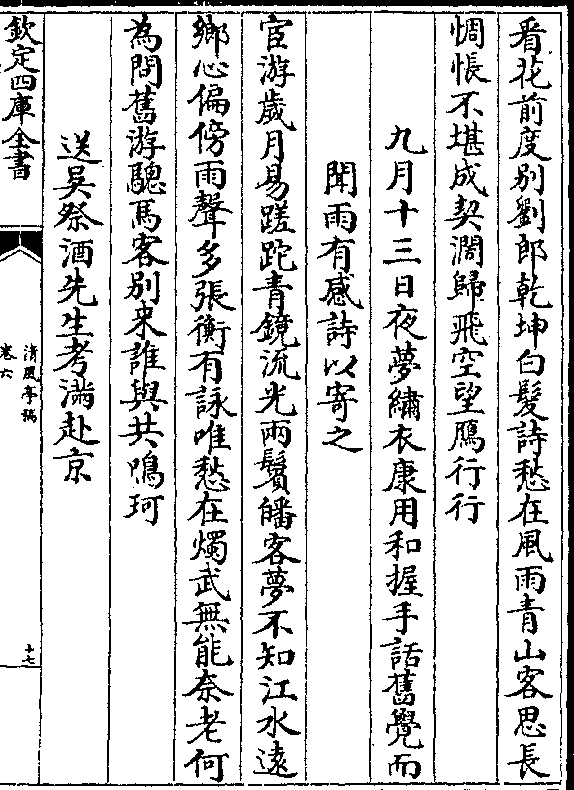 看花前度别劉郎乾坤白髮詩愁在風雨青山客思長
惆悵不堪成契濶歸飛空望鴈行行
九月十三日夜夢繡衣康用和握手話舊覺而
聞雨有感詩以寄之
宦游歲月易蹉跎青鏡流光兩鬢皤客夢不知江水遠
鄉心偏傍雨聲多張衡有詠唯愁在燭武無能奈老何
為問舊游驄馬客别来誰與共鳴珂
送吳祭酒先生考滿赴京
欽定四庫全書
清風亭稿
卷六
十七